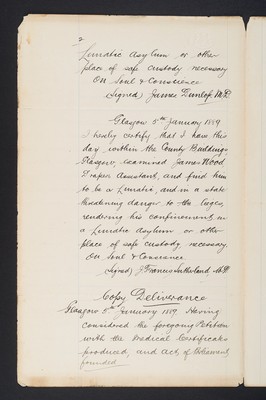 2
Lunatic Asylum or other
place of safe custody necessary
On Soul & Conscience
(signed) James Dunlop M.D.
Glasgow 5th January 1889
I hereby certify that I have this
day within the County Buildings
Glasgow, examined James Wood
Drapers Assistant, and find him
to be a Lunatic, and in a state
threatening danger to the lieges,
rendering his confinement in
a Lunatic Asylum or other
place of safe custody necessary.
On Soul & Conscience
(signed) J. Francis Sutherland M.D.
Copy Deliverance
Glasgow 5th January 1889. Having
considered the foregoing Petition
with the Medical Certificates
produced, and Act of Parliament
founded